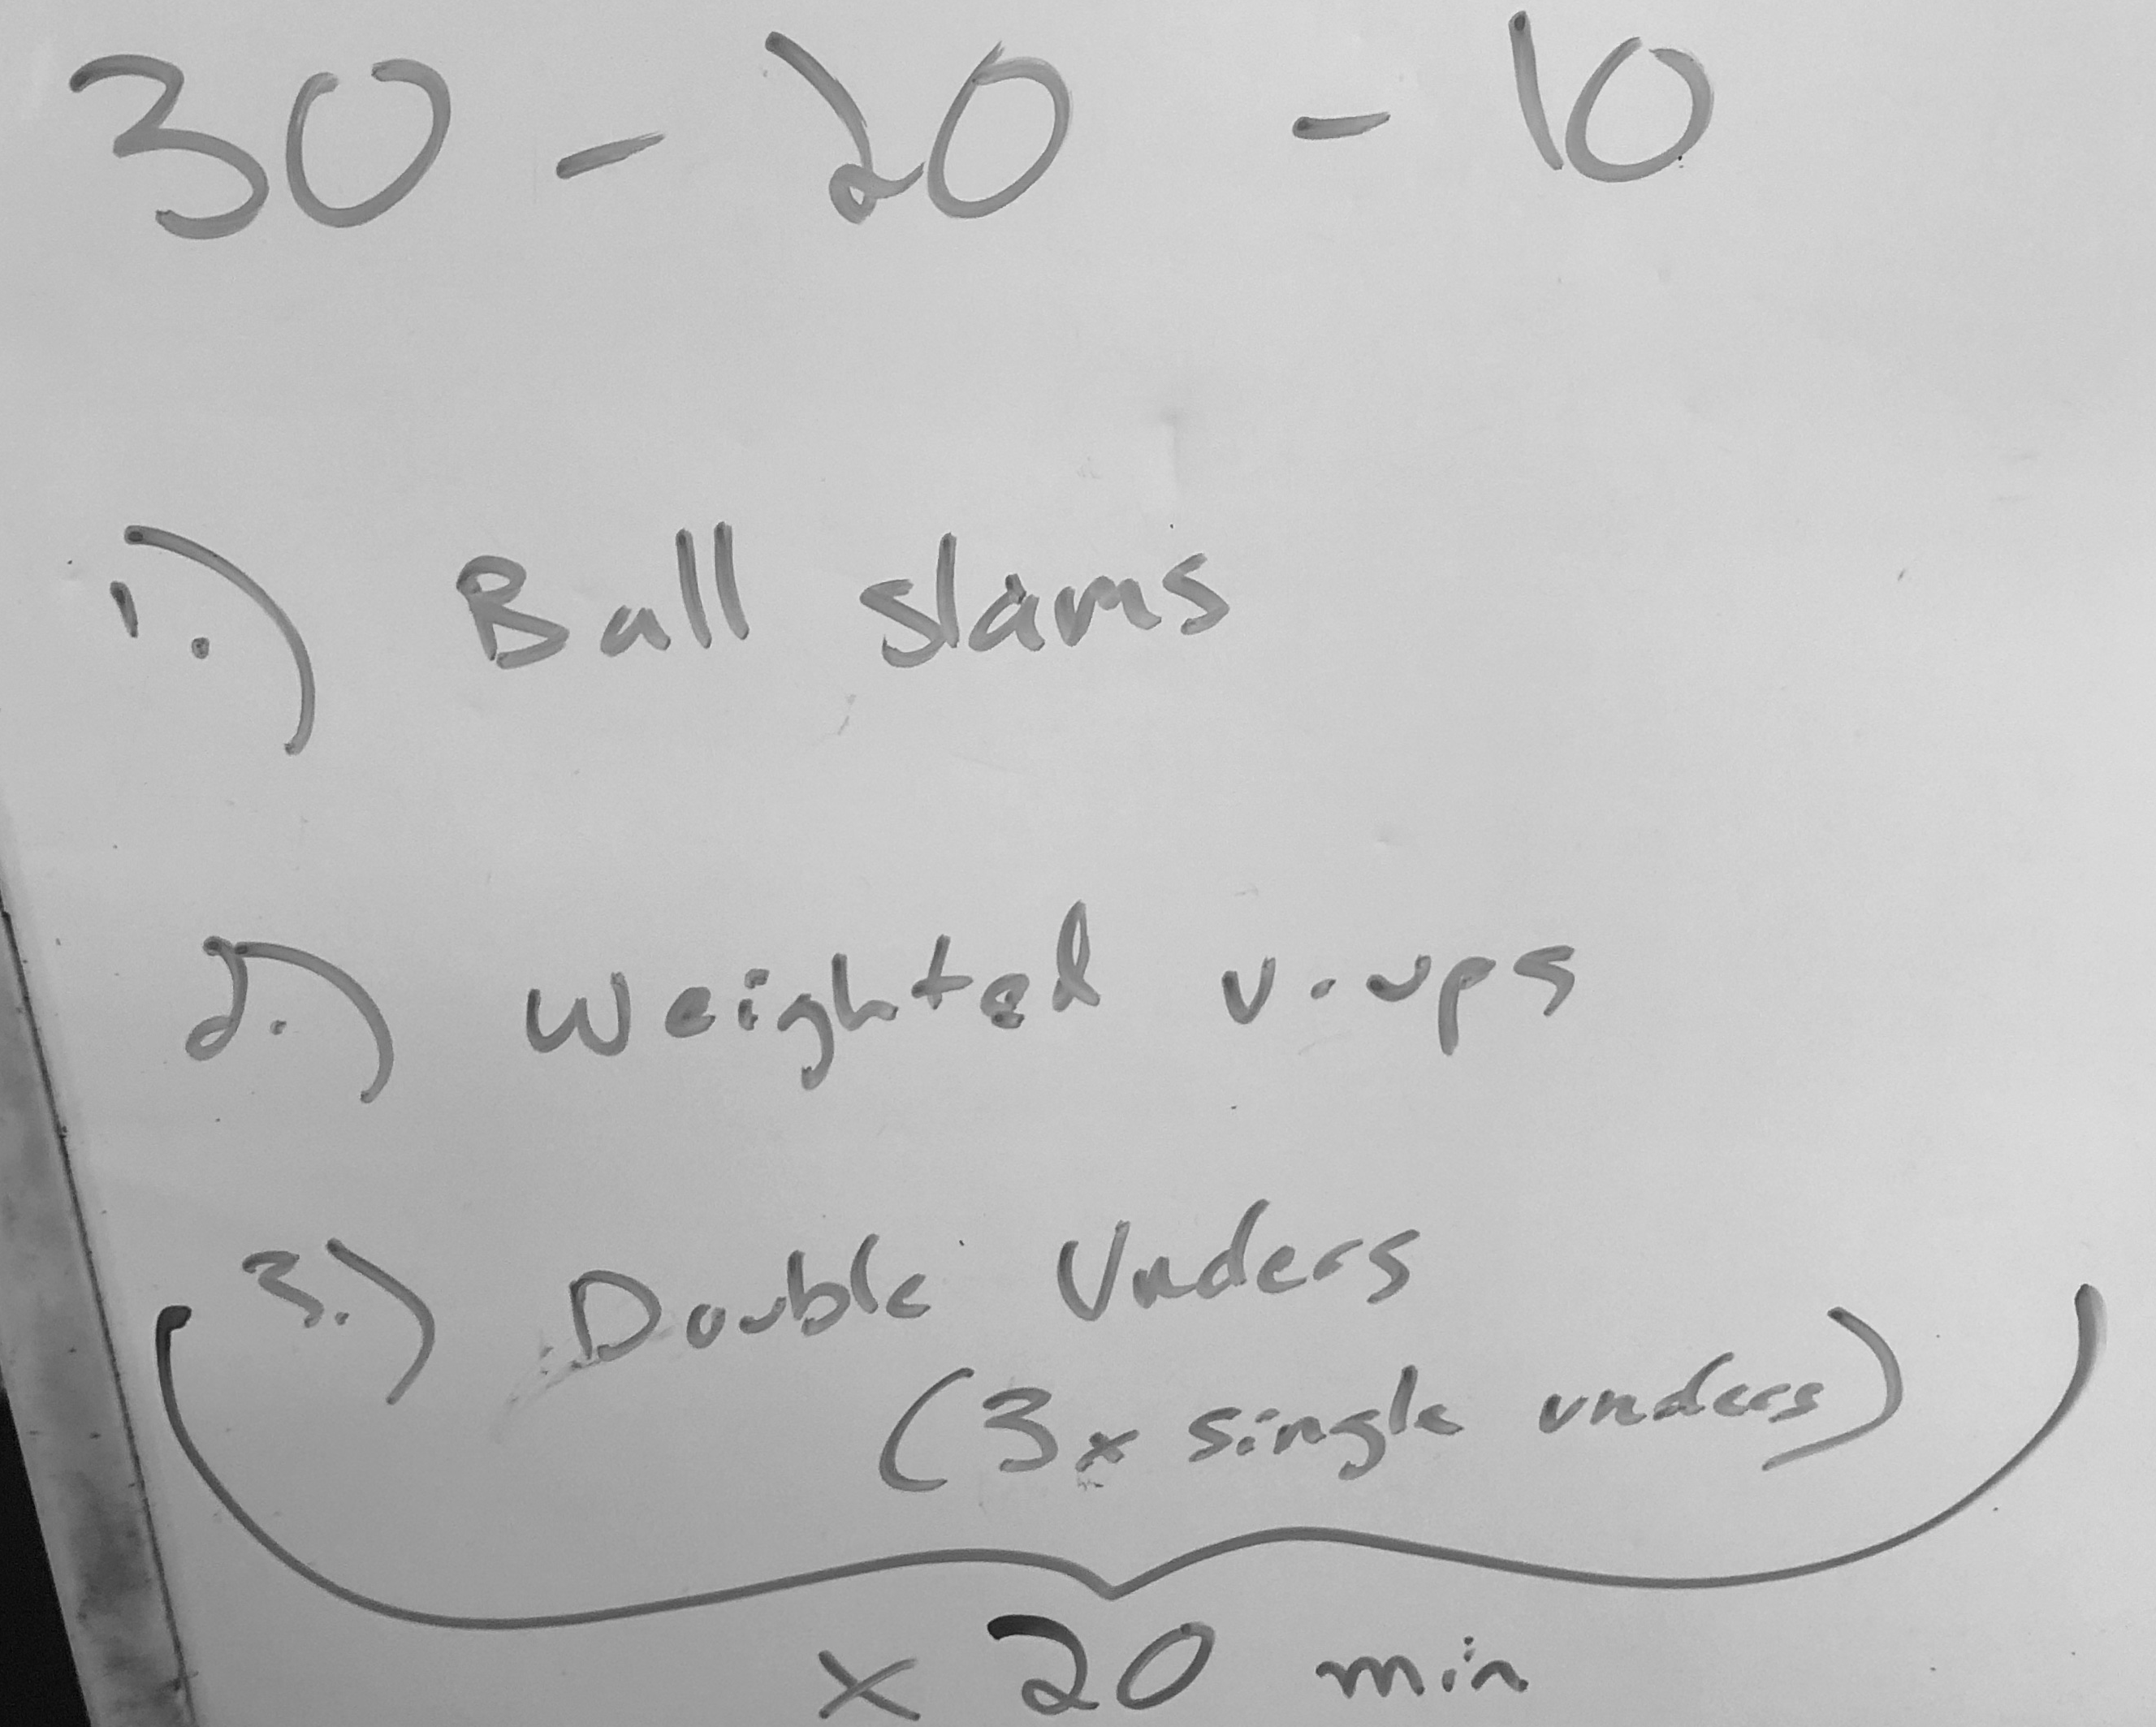 30 - 20 - 10
1.) Ball slams
2.) Weighted v-ups
3.) Double Unders
(3x single unders)
x 20 min